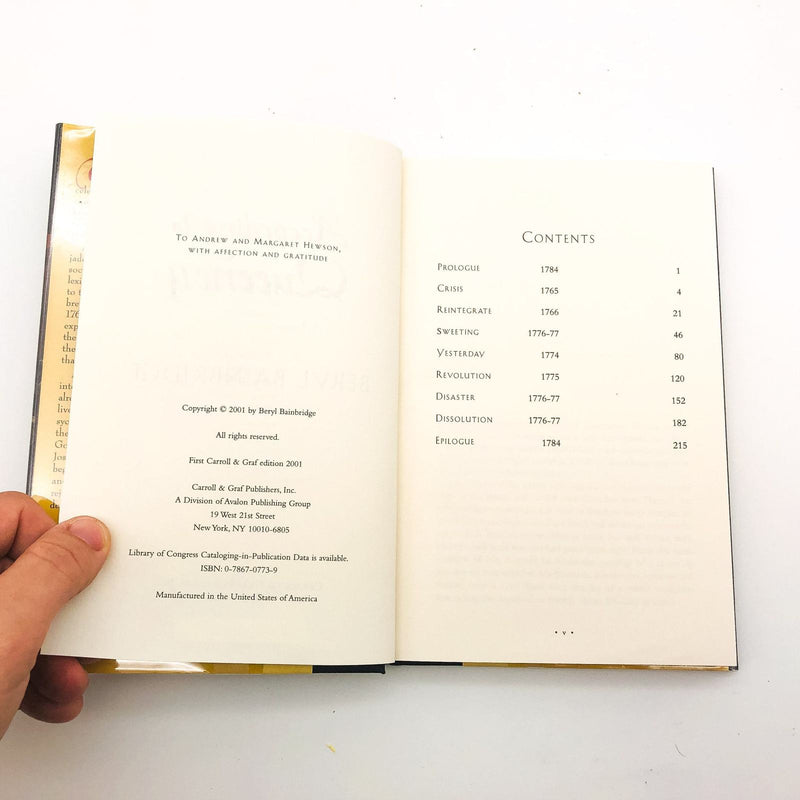 To Andrew and Margaret Hewson,
with affection and gratitude
Copyright © 2001 by Beryl Bainbridge
All rights reserved.
First Carroll & Graf edition 2001
Carroll & Graf Publishers, Inc.
A Division of Avalon Publishing Group
19 West 21st Street
New York, NY 10010-6805
Library of Congress Cataloging-in-Publication Data is available.
ISBN: 0-7867-0773-9
Manufactured in the United States of America
Contents
Prologue 1784 1
Crisis 1765 4
Reintegrate 1766 21
Sweeting 1776-77 46
Yesterday 1774 80
Revolution 1775 120
Disaster 1776-77 152
Dissolution 1776-77 182
Epilogue 1784 215
• v •